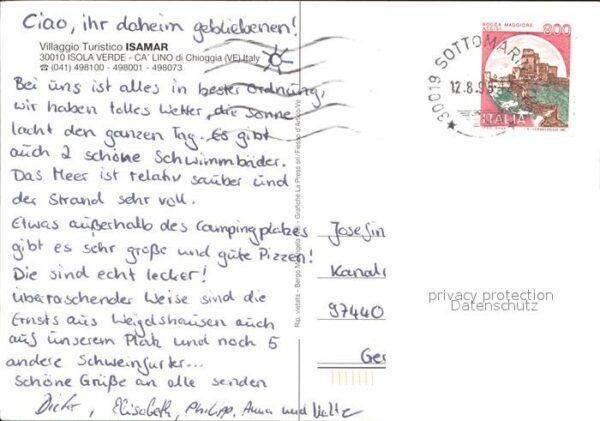 Ciao, ihr daheim gebliebenen!
Villaggio Turistico ISAMAR
30010 ISOLA VERDE - CA' LINO di Chioggia (VE) Italy
☎ (041) 498100 - 498001 - 498073
Bei uns ist alles in bester Ordnung,
wir haben tolles Wetter, die Sonne
lacht den ganzen Tag. Es gibt
auch 2 schöne Schwimmbäder.
Das Meer ist relativ sauber und
der Strand sehr voll.
Etwas außerhalb des Campingplatzes
gibt es sehr große und gute Pizzen!
Die sind echt lecker!
überraschender Weise sind die
Ernsts aus Weigolshausen auch
auf unserem Platz und noch 5
andere Schweinfurter...
Schöne Grüße an alle senden
Dieter, Elisabeth, Philipp, Anna und
Rip. vietata - Grafiche La Press srl/Fiesso d'Artico/Ve
ROCCA MAGGIORE
ASSISI
800
ITALIA
30019 SOTTOMARI
12.8.9
Josefin
Kanal
97440
Ge
privacy protection
Datenschutz